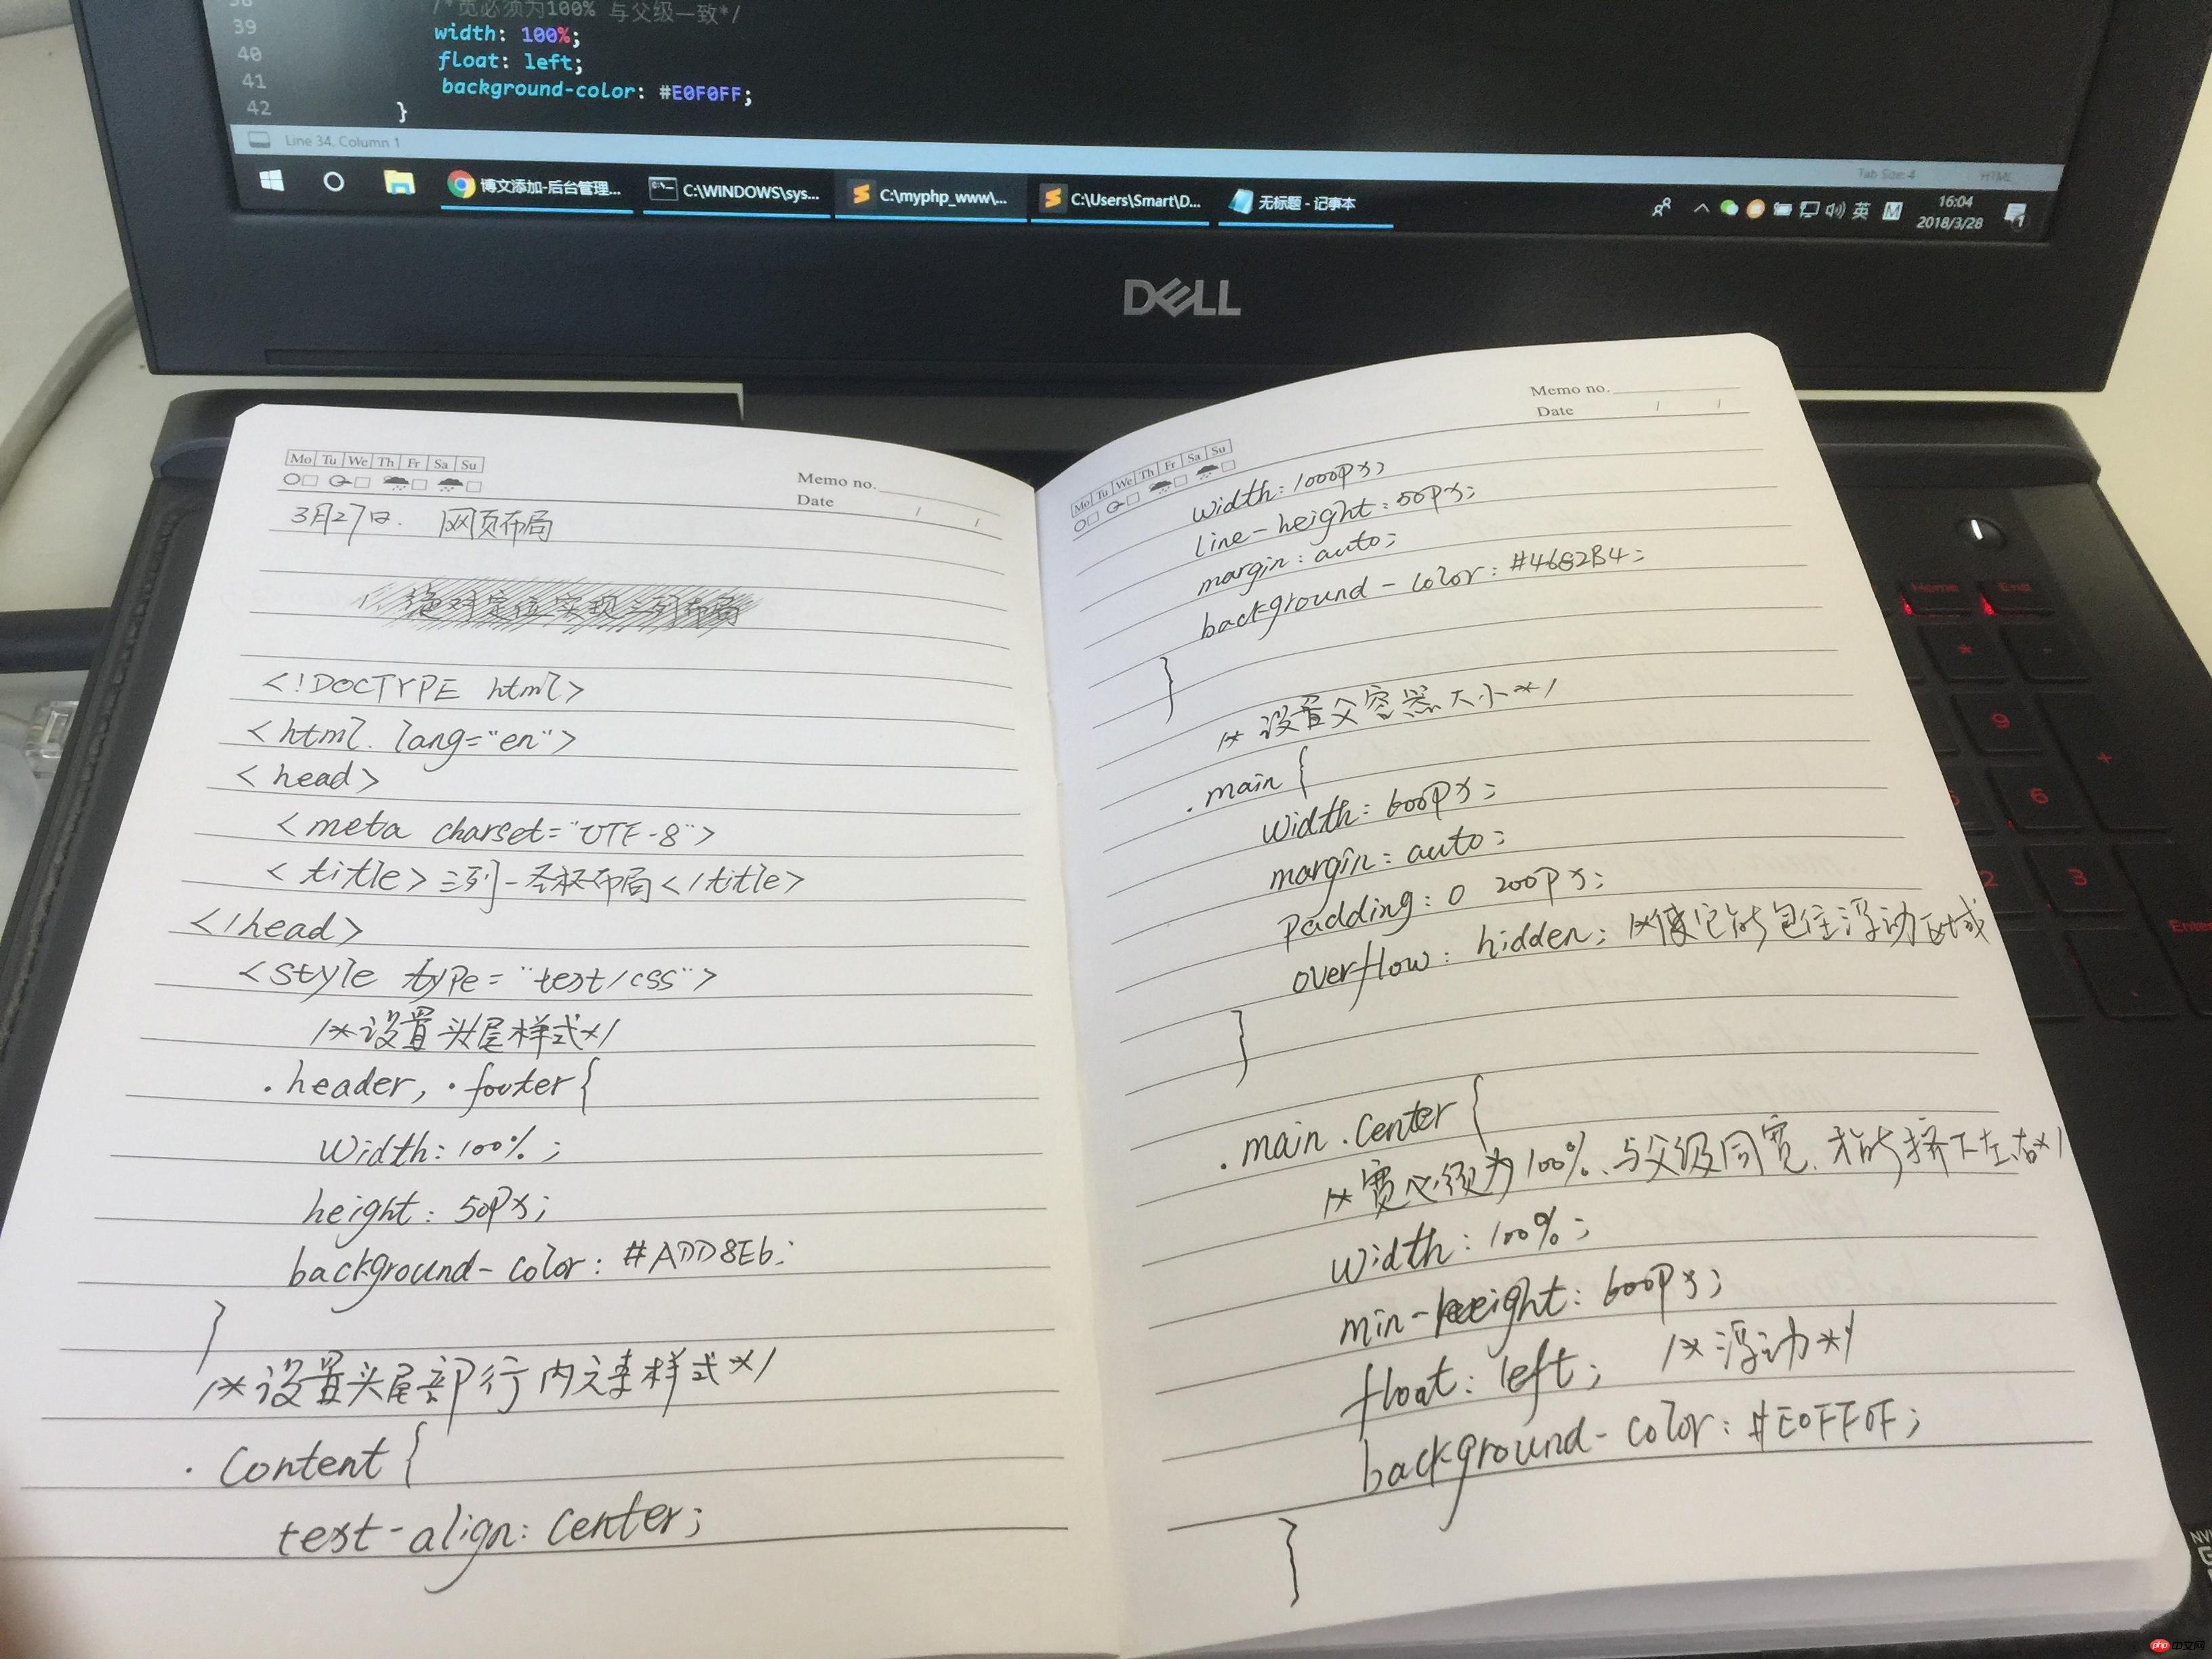 39
40
41
42
/*宽必须为100% 与父级一致*/
width: 100%;
float: left;
background-color: #E0F0FF;
}
Line 34, Column 1
Tab Size: 4
HTML
博文添加-后台管理...
C:\WINDOWS\sys...
C:\myphp_www\...
C:\Users\Smart\D...
无标题 - 记事本
英
M
16:04
2018/3/28
1
DELL
Mo Tu We Th Fr Sa Su
Memo no.
Date / /
3月27日. 网页布局
绝对定位实现三列布局
<!DOCTYPE html>
<html lang="en">
<head>
<meta charset="UTF-8">
<title>三列-圣杯布局</title>
</head>
<style type="text/css">
/*设置头尾样式*/
.header, .footer{
width: 100%;
height: 50px;
background-color: #ADD8E6;
}
/*设置头尾部行内元素样式*/
.content{
text-align: center;
Mo Tu We Th Fr Sa Su
Memo no.
Date / /
width: 1000px;
line-height: 50px;
margin: auto;
background-color: #4682B4;
}
/*设置父容器大小*/
.main{
width: 600px;
margin: auto;
padding: 0 200px;
overflow: hidden; /*使它能包住浮动区域
}
.main .center{
/*宽必须为100%、与父级同宽、才能挤下左右*/
width: 100%;
min-height: 600px;
float: left; /*浮动*/
background-color: #E0FF0F;
}
Home
End
*
-
9
+
6
2
3
Enter
php中文网